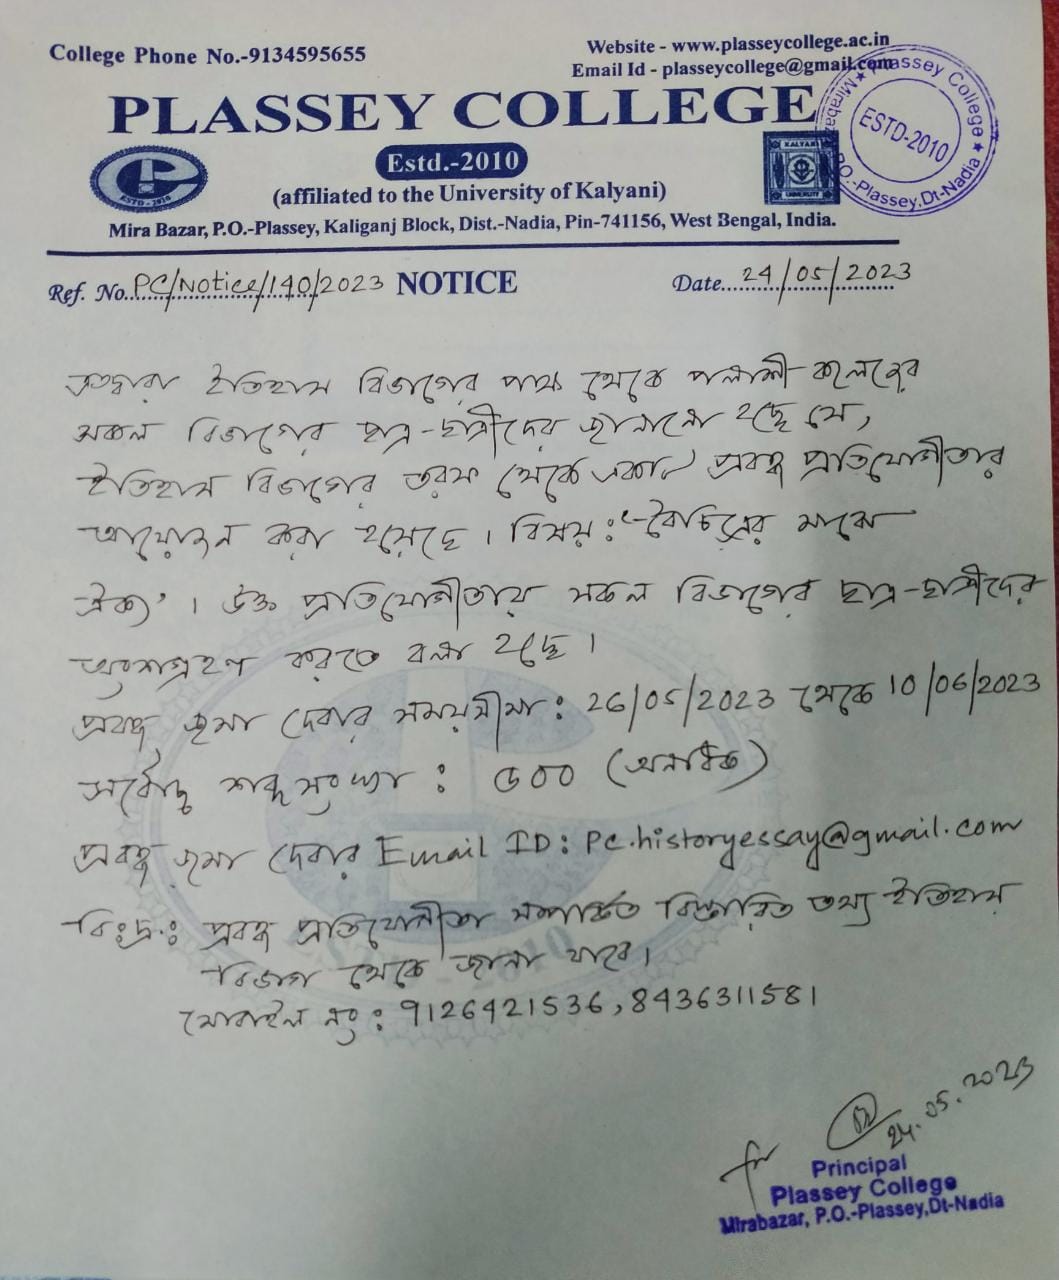 College Phone No.-9134595655
Website - www.plasseycollege.ac.in
Email Id - plasseycollege@gmail.com
PLASSEY COLLEGE
Estd.-2010
(affiliated to the University of Kalyani)
Mira Bazar, P.O.-Plassey, Kaliganj Block, Dist.-Nadia, Pin-741156, West Bengal, India.
ESTD - 2010
KALYANI
UNIVERSITY
Plassey College ★ Mirabazar, P.O.-Plassey, Dt-Nadia ★
ESTD-2010
Ref. No. PC/Notice/140/2023 NOTICE Date 24/05/2023
এতদ্বারা ইতিহাস বিভাগের পক্ষ থেকে পলাশী কলেজের
সকল বিভাগের ছাত্র-ছাত্রীদের জানানো হচ্ছে যে,
ইতিহাস বিভাগের তরফ থেকে একটি প্রবন্ধ প্রতিযোগীতার
আয়োজন করা হয়েছে। বিষয়: "বৈচিত্রের মাঝে
ঐক্য'। উক্ত প্রতিযোগীতায় সকল বিভাগের ছাত্র-ছাত্রীদের
অংশগ্রহণ করতে বলা হচ্ছে।
প্রবন্ধ জমা দেবার সময়সীমা: 26/05/2023 থেকে 10/06/2023
সর্বোচ্চ শব্দ সংখ্যা: ৫০০ (অনধিক)
প্রবন্ধ জমা দেবার Email ID: pc.historyessay@gmail.com
বিঃদ্রঃ: প্রবন্ধ প্রতিযোগীতা সম্পর্কিত বিস্তারিত তথ্য ইতিহাস
বিভাগ থেকে জানা যাবে।
মোবাইল নং: 9126421536, 8436311581
24.05.2023
for
Principal
Plassey College
Mirabazar, P.O.-Plassey, Dt-Nadia